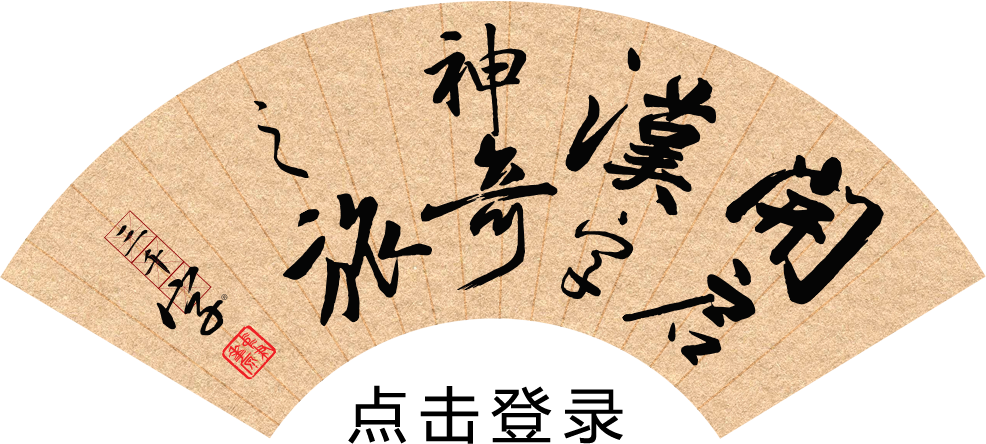 開启
漢字
神奇
之旅
三千字
®
点击登录